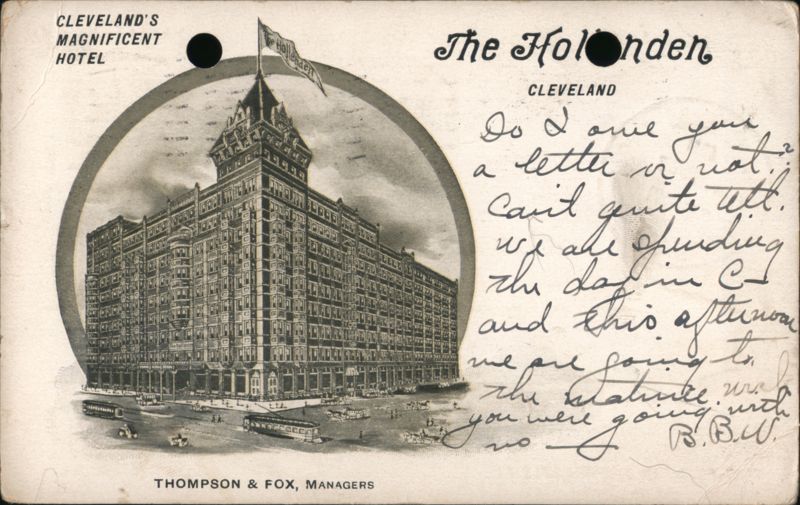 CLEVELAND'S
MAGNIFICENT
HOTEL
The Hollenden
The Hollenden
CLEVELAND
Do I owe you
a letter or not?
Can't quite tell.
We are spending
the day in C—
and this afternoon
we are going to
the matinee. wish
you were going with
us — B. B. W.
THOMPSON & FOX, MANAGERS